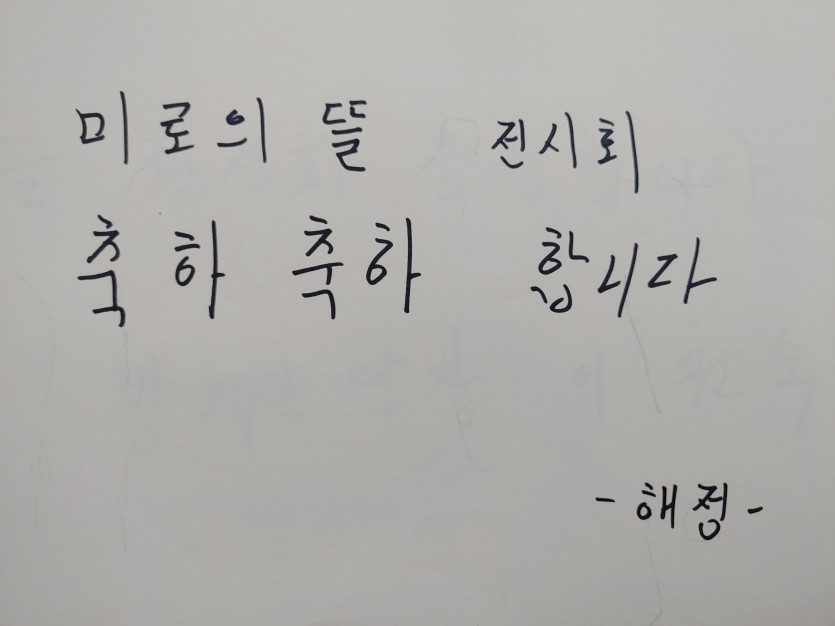 미로의 뜰 전시회
축하 축하 합니다
- 해정 -